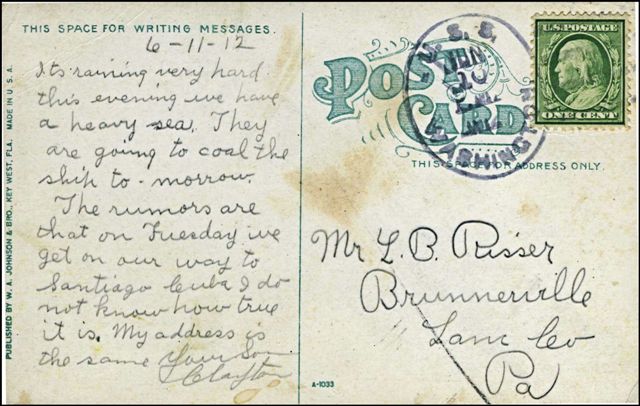 THIS SPACE FOR WRITING MESSAGES.
6-11-12
Its raining very hard
this evening we have
a heavy sea. They
are going to coal the
ship to-morrow.
The rumors are
that on Tuesday we
get on our way to
Santiago Cuba I do
not know how true
it is. My address is
the same Your Son
Clayton
PUBLISHED BY W. A. JOHNSON & BRO., KEY WEST, FLA. MADE IN U.S.A.
POST CARD
THIS SPACE FOR ADDRESS ONLY.
U.S.S.
JUN
WASHINGTON
U.S. POSTAGE
ONE CENT
Mr L. B. Risser
Brunnerville
Lanc Co
Pa
A-1033